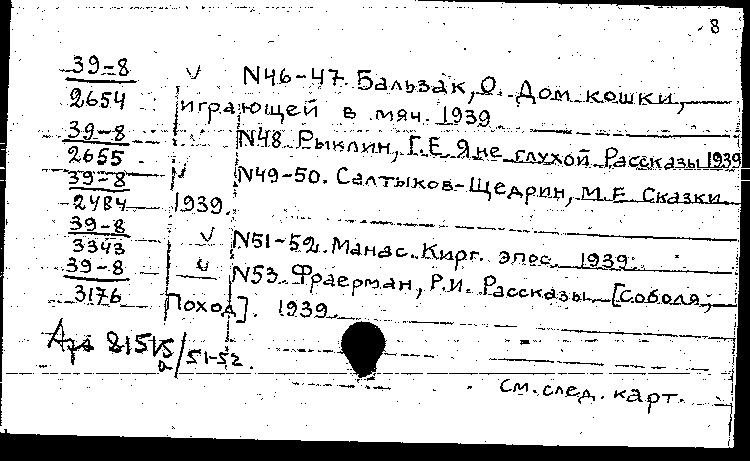 8
39-8 V N46-47. Бальзак, О. Дом кошки,
2654 играющей в мяч. 1939
39-8 N48 Рыклин, Г.Е. Я не глухой Рассказы 1939
2655
39-8 V N49-50. Салтыков-Щедрин, М.Е. Сказки
2484 1939.
39-8 V N51-52. Манас. Кирг. эпос. 1939.
3343
39-8 V N53. Фраерман, Р.И. Рассказы. [Соболя;
3176 Поход]. 1939.
51-52.
см. след. карт.